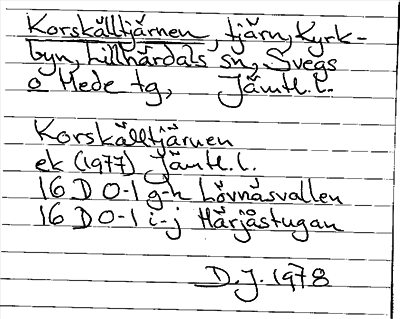 Korskälltjärnen, tjärn, Kyrk-
byn, Lillhärdals sn, Svegs
o Hede tg, Jämtl. l.
Korskälltjärnen
ek (1977) Jämtl. l.
16 D 0-1 g-h Lövnäsvallen
16 D 0-1 i-j Härjåstugan
D.J. 1978